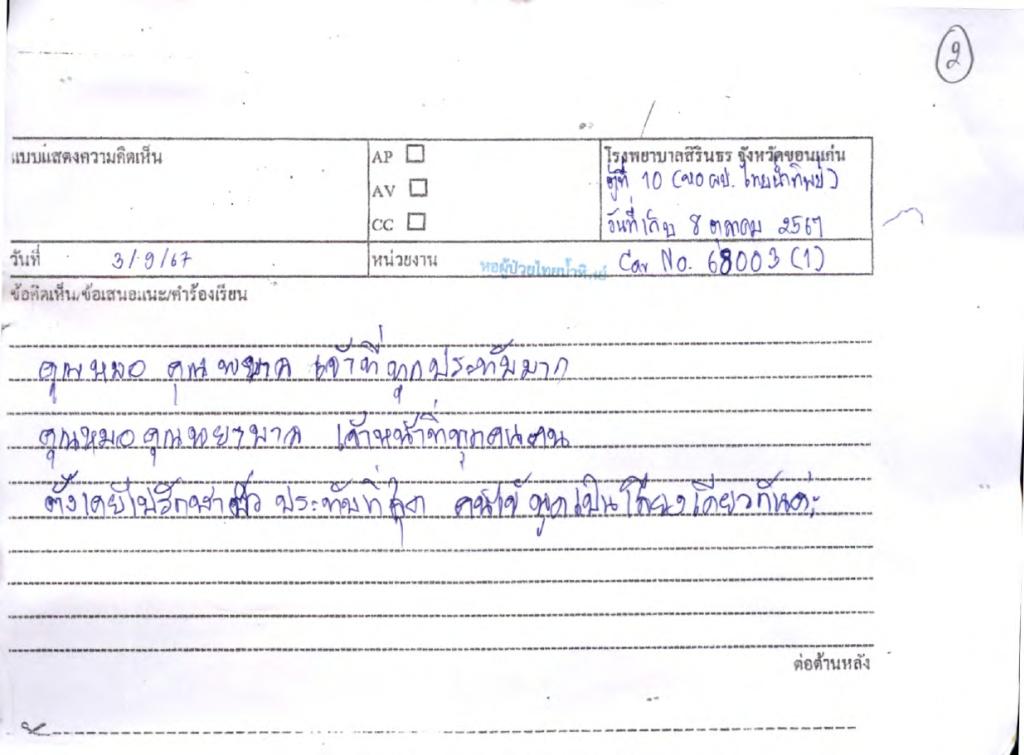 2
แบบแสดงความคิดเห็น
AP
AV
CC
โรงพยาบาลสิรินธร จังหวัดขอนแก่น
ตู้ที่ 10 (หอผป. ไทยน้ำทิพย์)
วันที่เก็บ 8 ตุลาคม 2567
วันที่ 3/9/67
หน่วยงาน หอผู้ป่วยไทยน้ำทิพย์ Car No. 68003 (1)
ข้อคิดเห็น/ข้อเสนอแนะ/คำร้องเรียน
คุณหมอ คุณพยาล เจ้าที่ ทุกประทับมาก
คุณหมอคุณพยาบาล เจ้าหน้าที่ทุกคนคน
ตั้งเคยไปรักษาตัว ประทับที่สุด คนไข้ พูดเป็นเสียงเดียวกันค่ะ
ต่อด้านหลัง